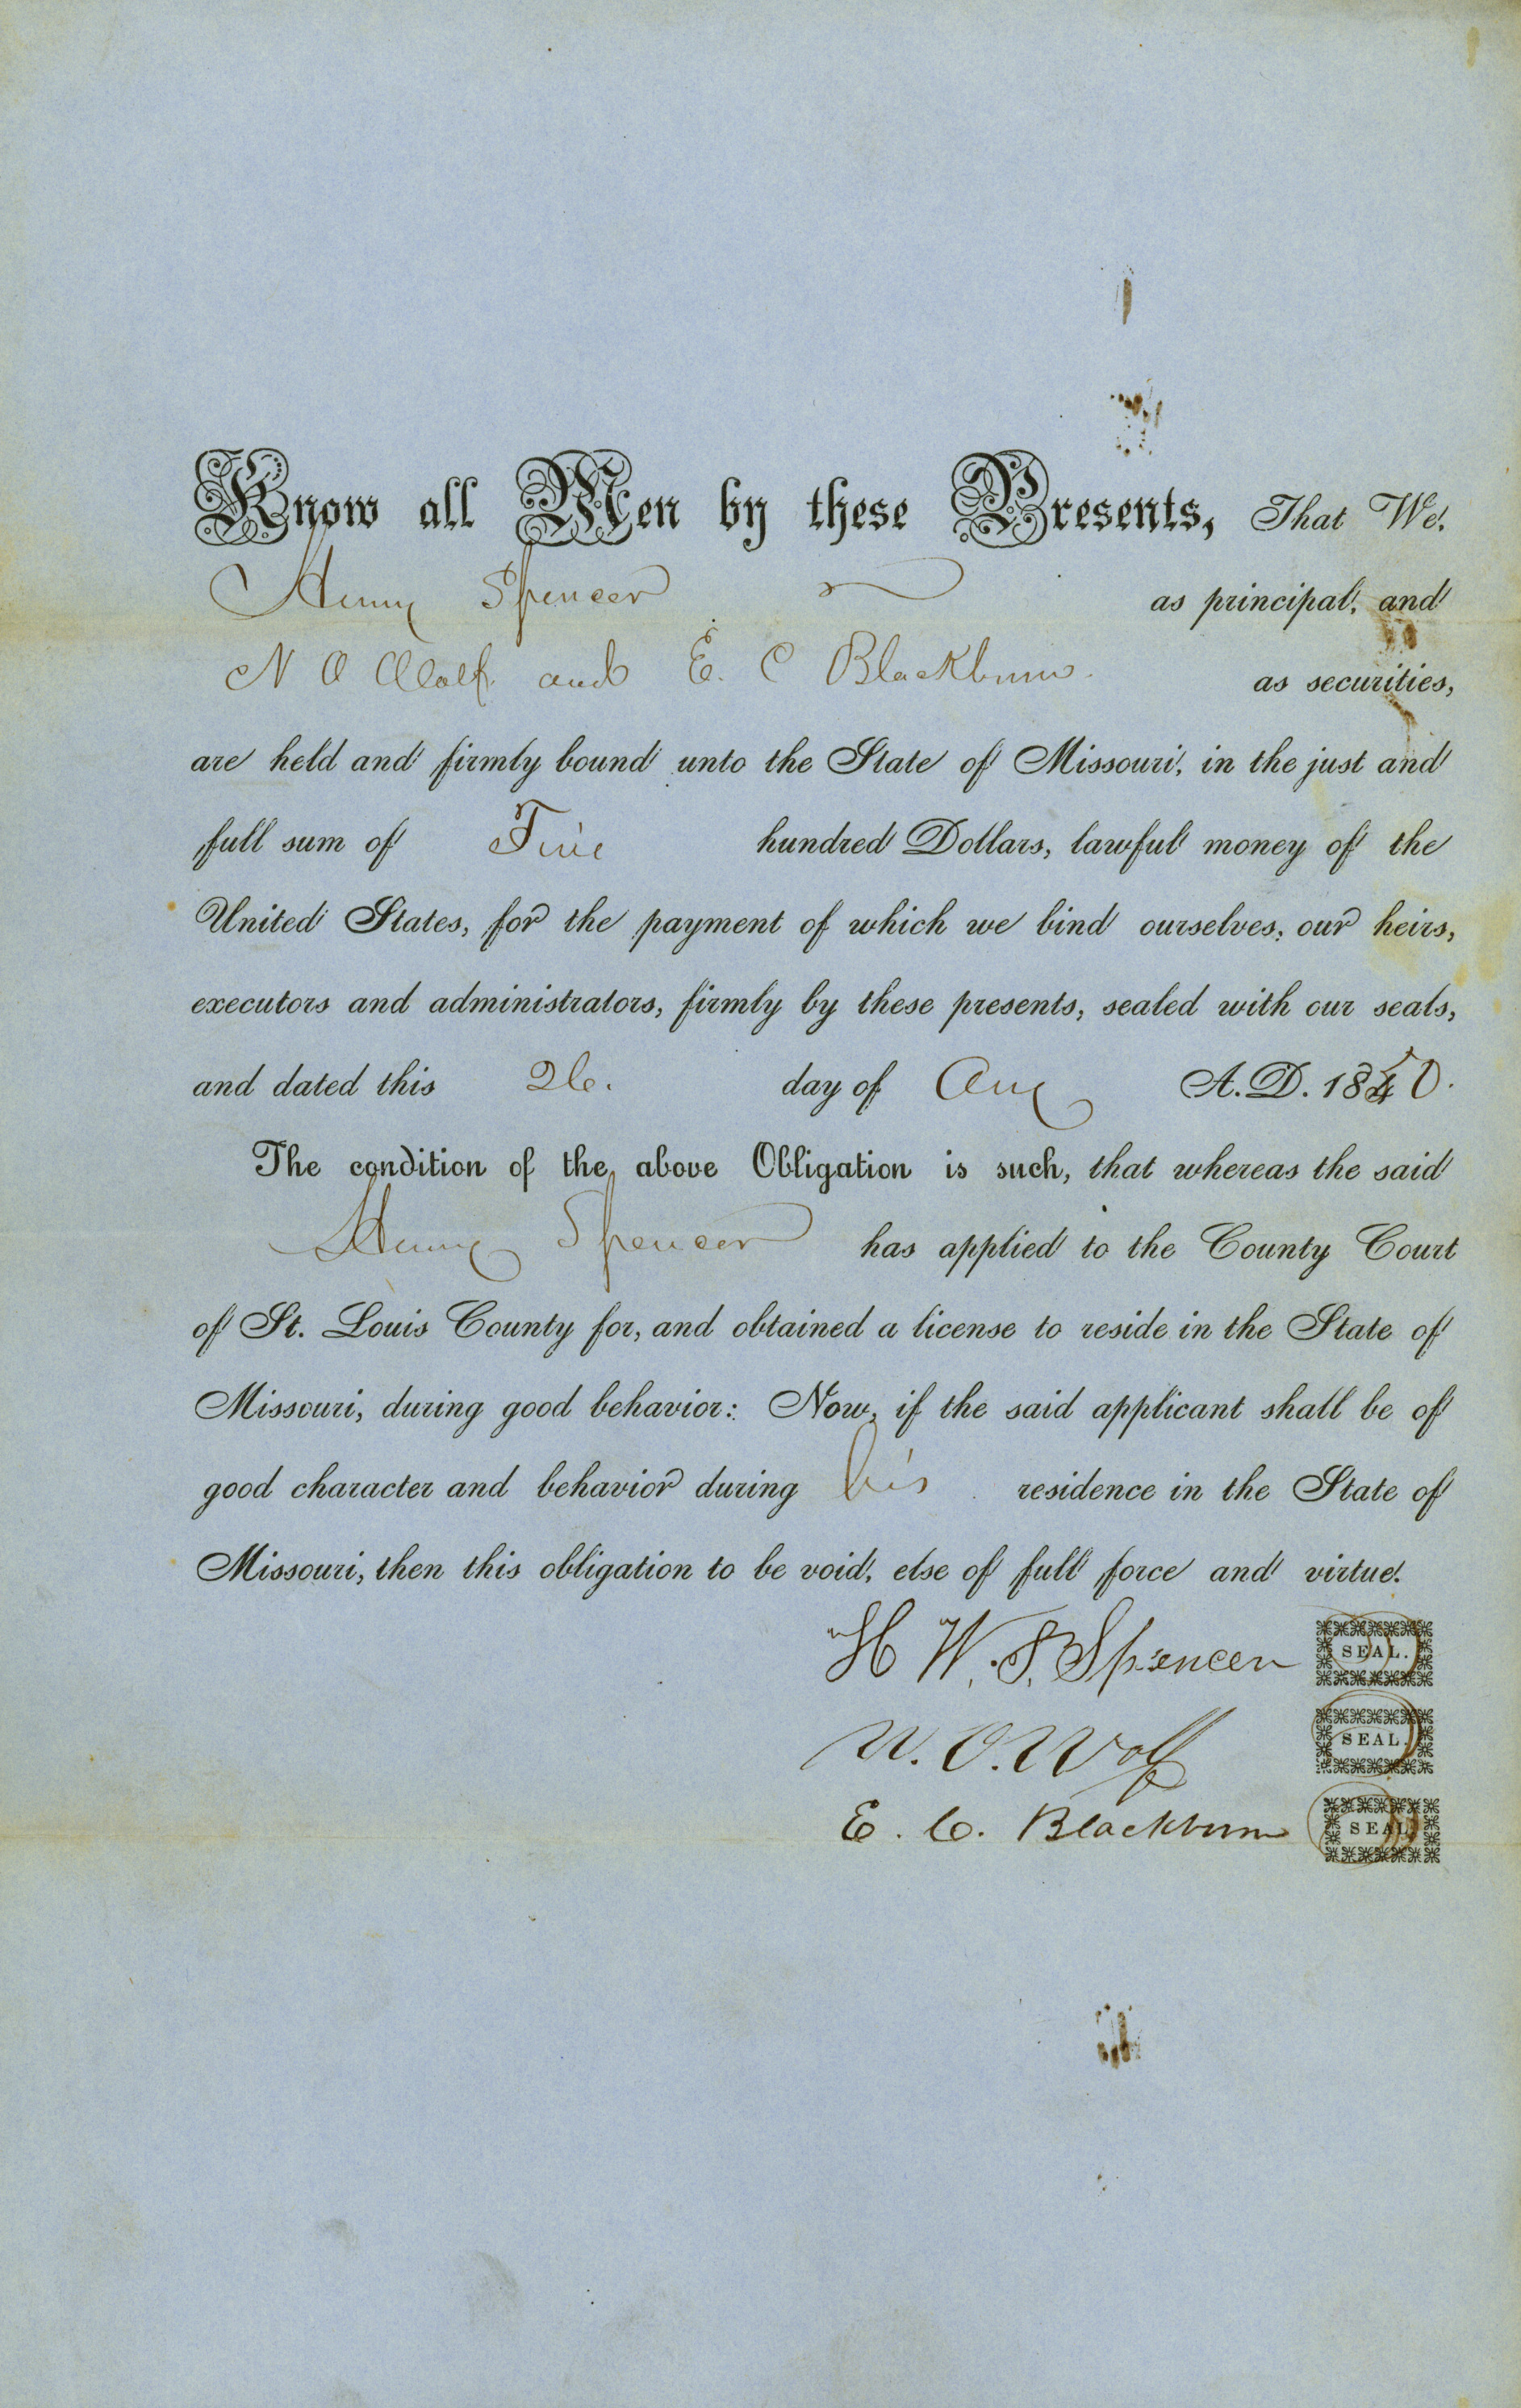 Know all Men by these Presents, That We,
Henry Spencer as principal, and
N O Wolf and E. C Blackburn. as securities,
are held and firmly bound unto the State of Missouri, in the just and
full sum of Five hundred Dollars, lawful money of the
United States, for the payment of which we bind ourselves, our heirs,
executors and administrators, firmly by these presents, sealed with our seals,
and dated this 26. day of Aug A. D. 1850.
The condition of the above Obligation is such, that whereas the said
Henry Spencer has applied to the County Court
of St. Louis County for, and obtained a license to reside in the State of
Missouri, during good behavior: Now, if the said applicant shall be of
good character and behavior during his residence in the State of
Missouri, then this obligation to be void, else of full force and virtue.
H W. S. Spencer SEAL.
N. O. Wolf SEAL.
E. C. Blackburn SEAL.